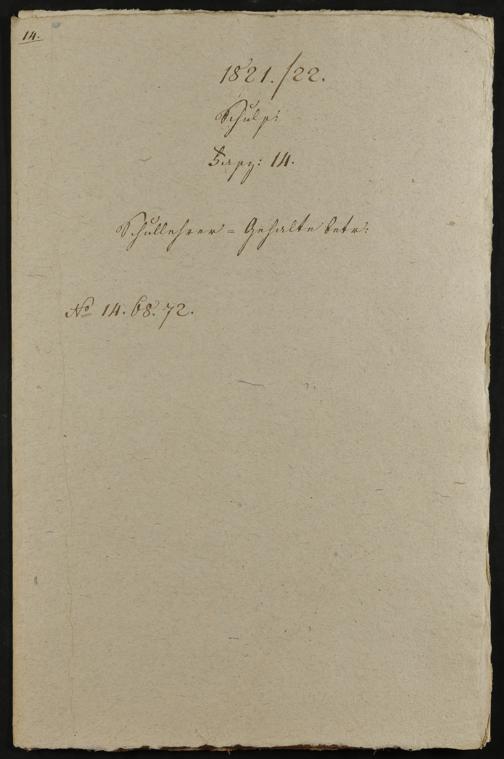 14.
1821./22.
Schulp:
Fapz: 14.
Schullehrer = Gehalte betr:
No 14. 68. 72.